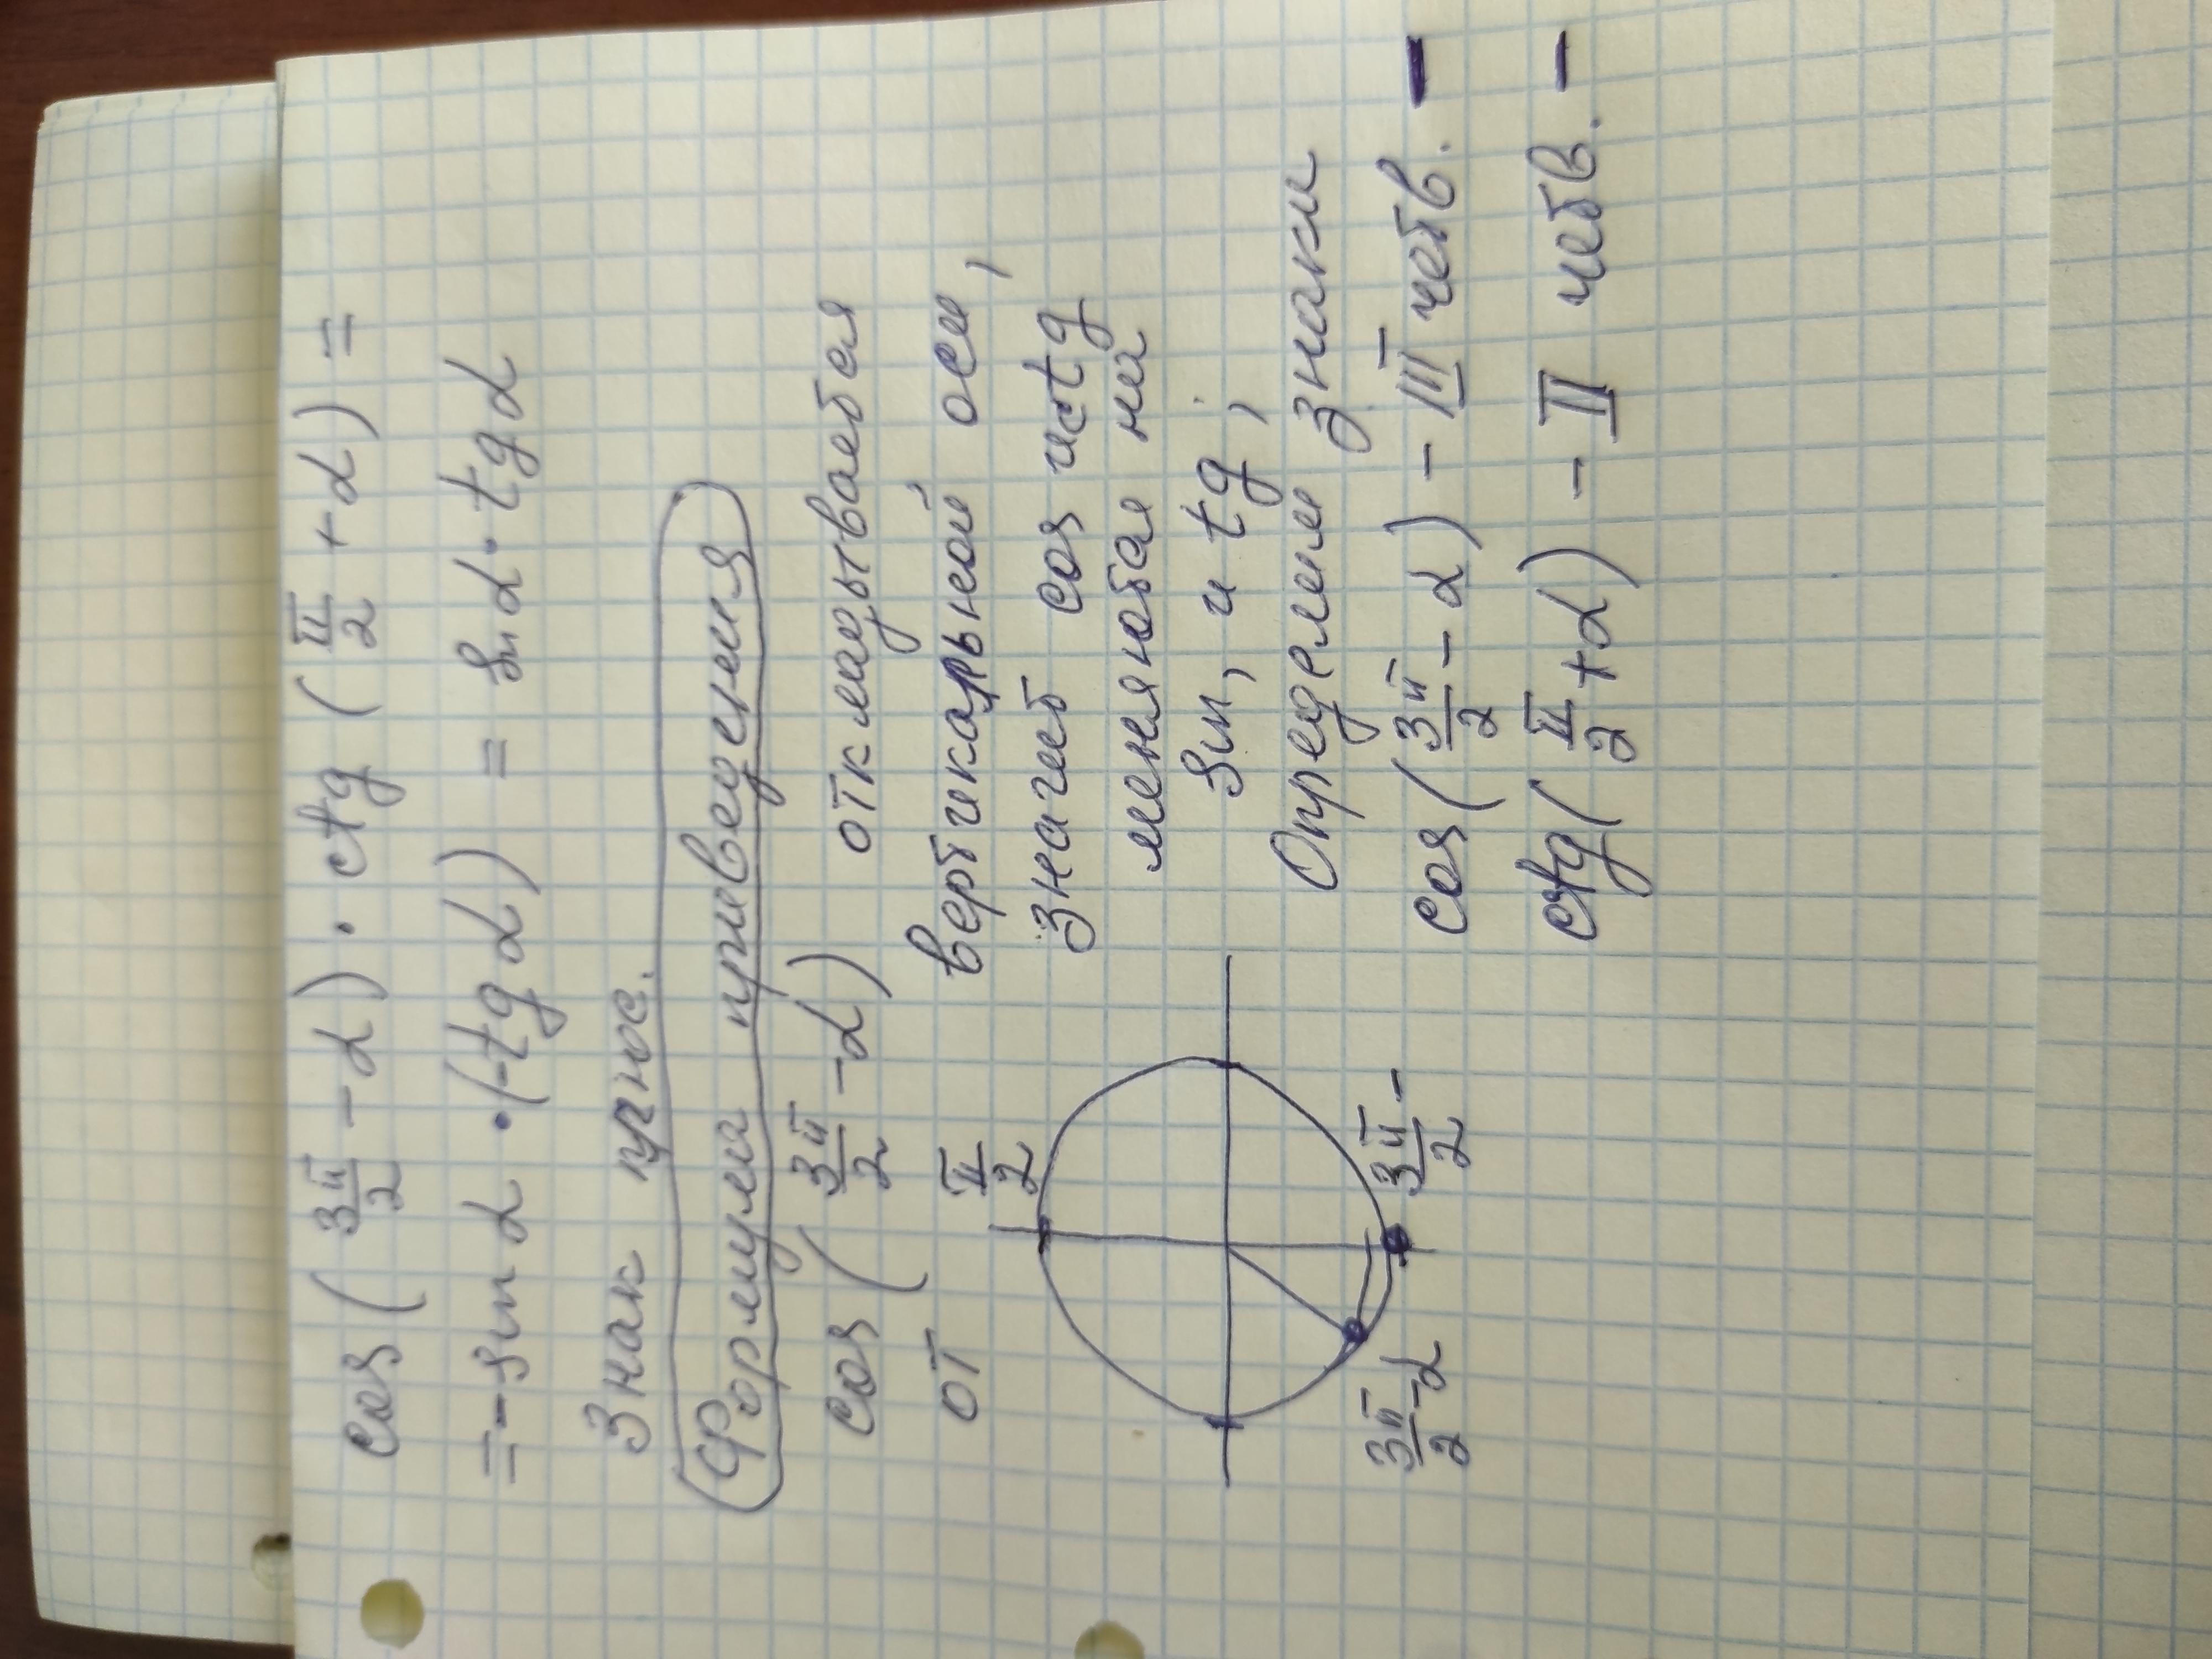 cos(3π/2 - α) · ctg(π/2 + α) =
= - sin α · (-tg α) = sin α · tg α
Знак плюс.
Формула приведения
cos(3π/2 - α) откладывается
от вертикальной оси,
значит cos и ctg
меняются на
sin, и tg;
π/2
3π/2 -
3π/2 - α
Определим знаки
cos(3π/2 - α) - III четв. -
ctg(π/2 + α) - II четв. -